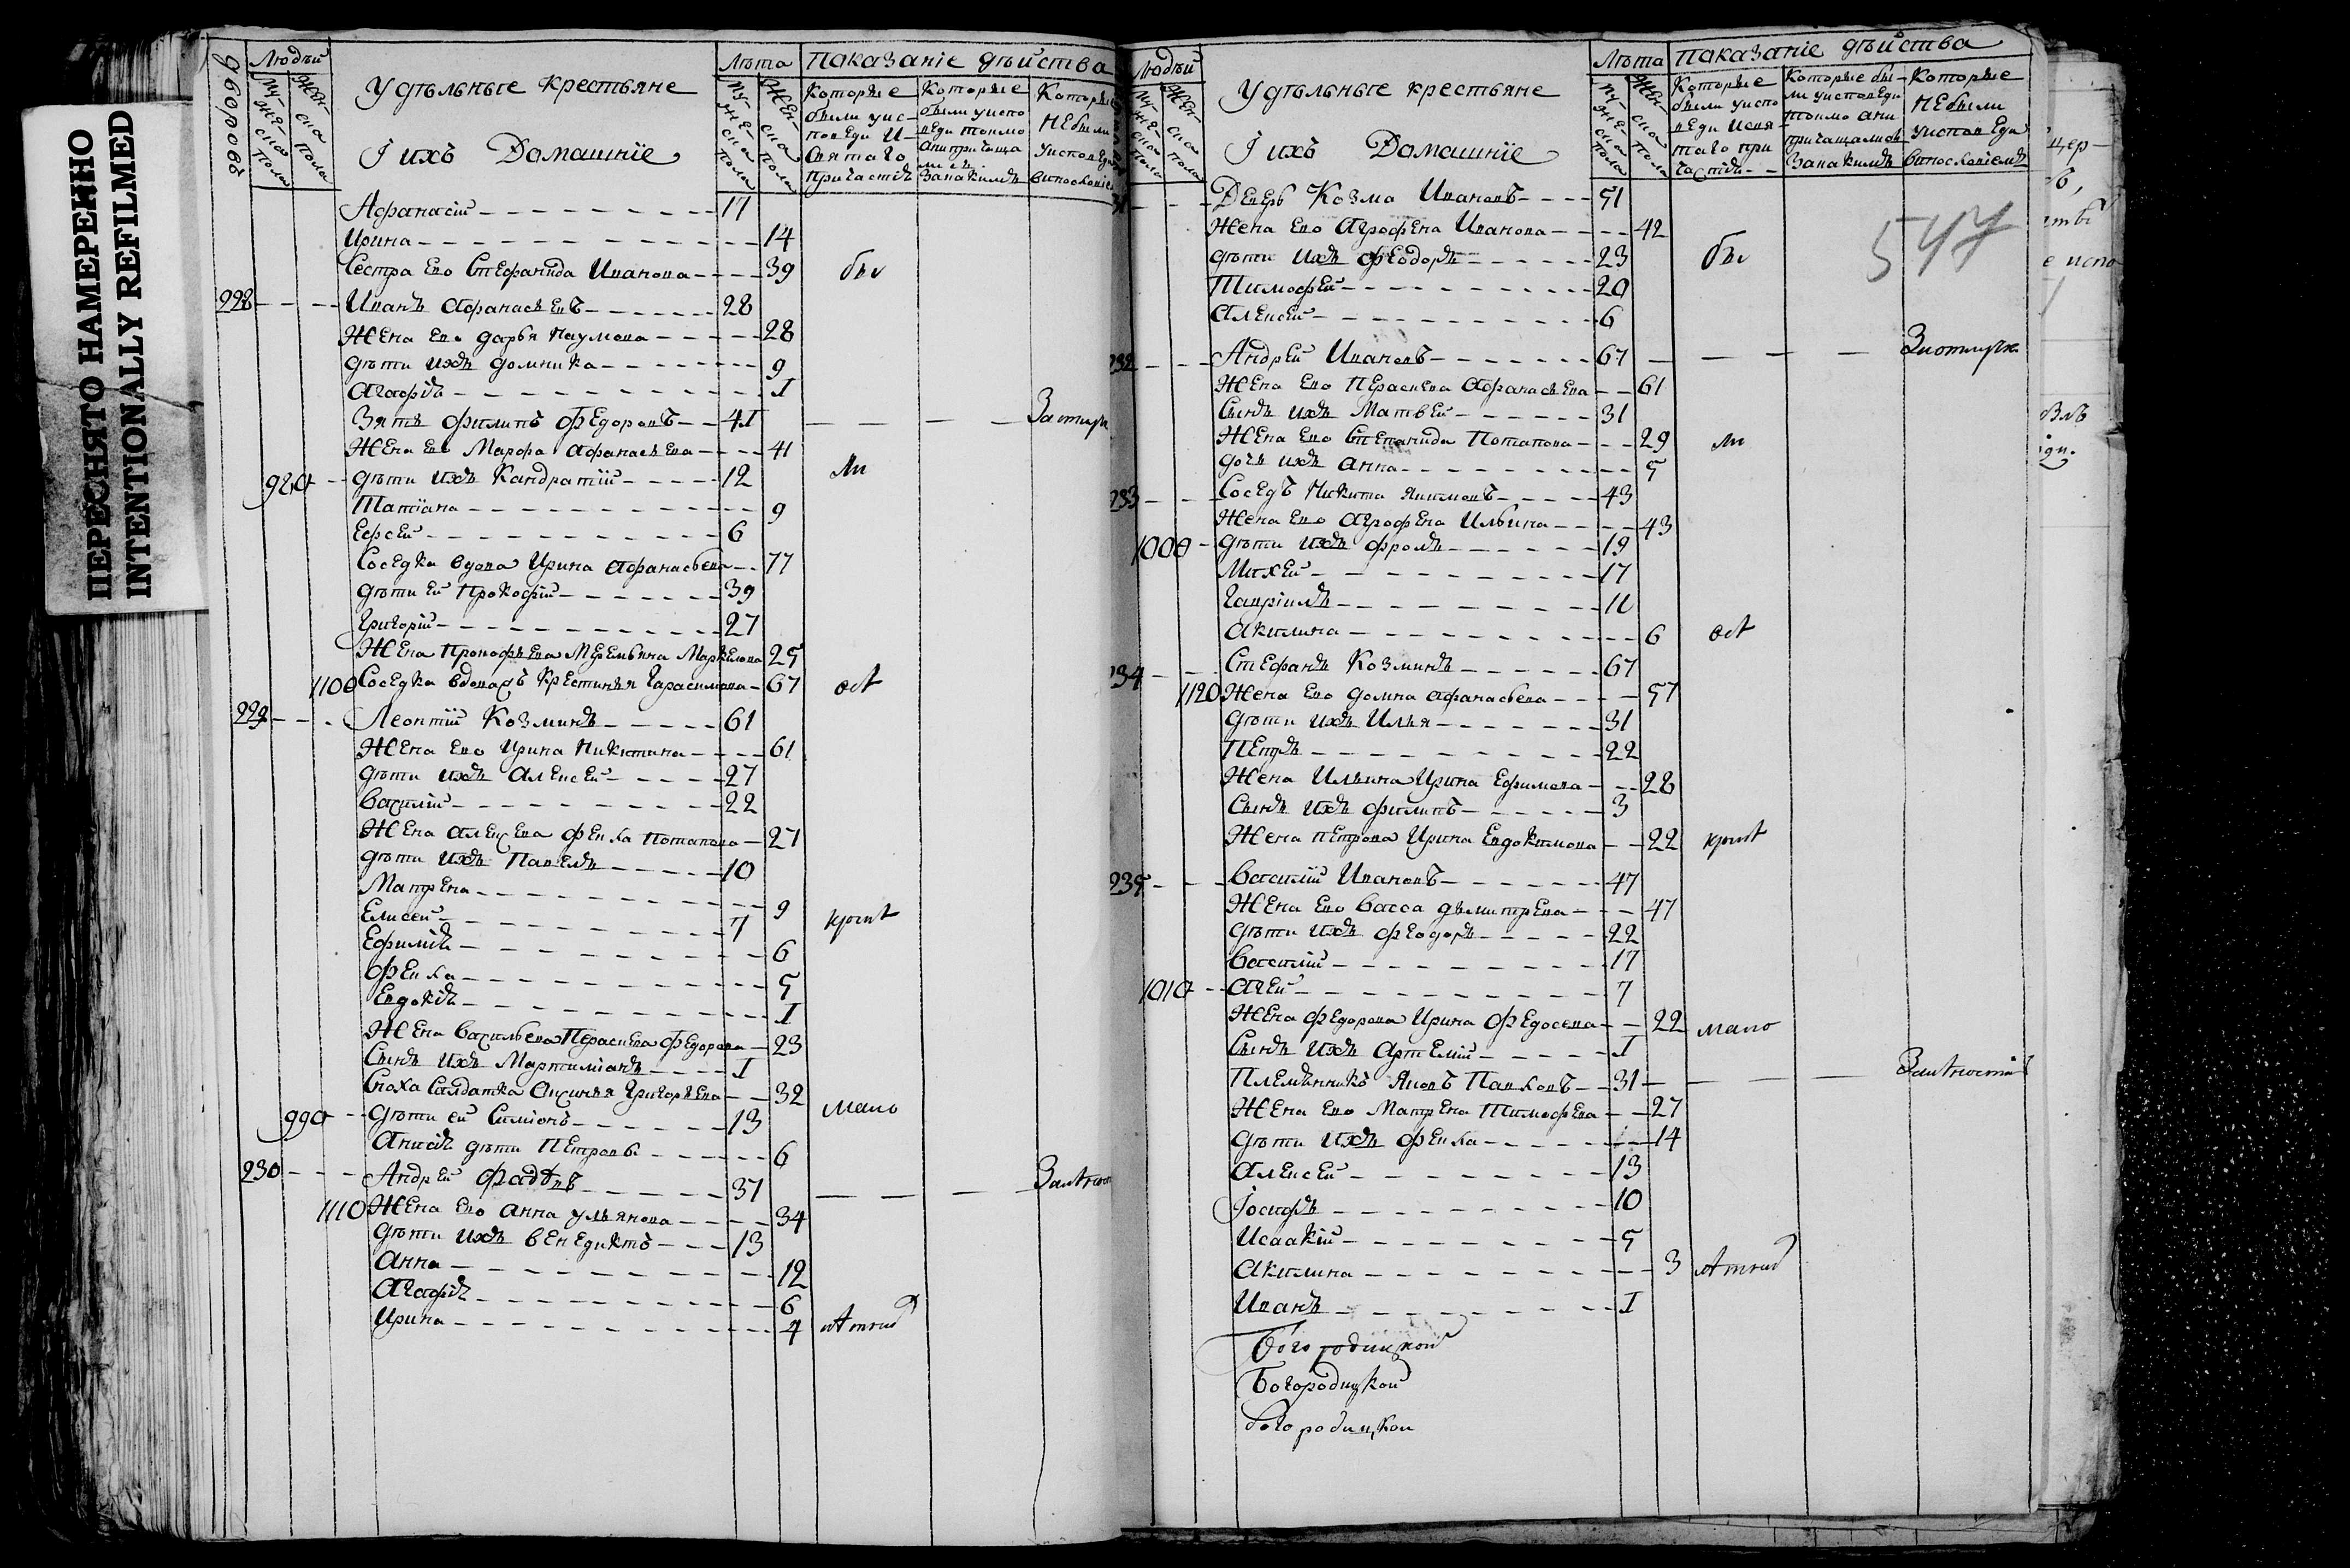 ПЕРЕСНЯТО НАМЕРЕННО
INTENTIONALLY REFILMED
дворовъ
Людѣй
Му-жес-ка пола
Жен-ска пола
Удѣльные крестьяне
Iихъ Домашнiе
Лѣта
Му-жес-ка пола
Жен-ска пола
показанiе дѣйства
Которые были уис-поведи И святаго причастiя
Которые были уиспо веди токмо
Которые НЕбыли уисповеди
Афанасiй 17
Ирина 14
Сестра Ево Стефанида Иванова 39 бы
228 Иванъ Афанасьевъ 28
Жена Ево Дарья Наумова 28
Дѣти ихъ Домника 9
Агафiя I
Зять Филипъ Федоровъ 41
Жена Ево Марфа Афанасьева 41 ли
980 Дѣти ихъ Кандратiй 12
Татiана 9
Ефсей 6
Соседка вдова Ирина Афанасьева 77
Дѣти Ей Прокофiй 39
Григорiй 27
Жена Прокофьева Маркелова 25
1100 Соседка Крестинья Гарасимова 67 ост
229 Леонтiй Козминъ 61
Жена Ево Ирина Никитина 61
Дѣти ихъ Алексей 27
Василiй 22
Жена Алексева Фекла Потапова 27
Дѣти ихъ Павелъ 10
Матрена 9
Елисей 7
Ефимiя 6
Фекла 5
Евдокiя I
Жена Васильева Парасковья Федорова 23
Сынъ ихъ Мартимiанъ I
Сноха Салдатка Аксинья Григорьева 32 мало
990 Дѣти ей Симiонъ 13
Анисiя дѣти Петровы 6
230 Андрей Фадѣевъ 37
1110 Жена Ево Анна Ульянова 34
Дѣти ихъ Венедиктъ 13
Анна 12
Агафiя 6
Ирина 4
Людѣй
Му-жес-ка пола
Жен-ска пола
Удѣльные крестьяне
Iихъ Домашнiе
Лѣта
Му-жес-ка пола
Жен-ска пола
показанiе дѣйства
Которые были уиспо веди исвя-таго при частiя
Которые бы-ли уисповеди токмо ани причащались
Которые НЕбыли уисповеди
547
Деверь Козма Ивановъ 51
Жена Ево Агрофена Иванова 42
Дѣти ихъ Феодоръ 23 бы
Тимофей 20
Алексей 6
232 Андрей Ивановъ 67
Жена Ево Афанасьева 61
Сынъ ихъ Матвей 31
Жена Ево Степанида Потапова 29 ли
дочь ихъ Анна 5
233 Соседъ Никита Якимовъ 43
Жена Ево Агрофена Ильина 43
1000 Дѣти ихъ Фролъ 19
Михей 17
Гаврiилъ 11
Акилина 6 ост
234 Стефанъ Козминъ 67
1120 Жена Ево Домна Афанасьева 57
Дѣти ихъ Илья 31
Петръ 22
Жена Ильина Ирина Ефимова 28
Сынъ ихъ Филипъ 3
Жена Петрова Ирина Евдокимова 22
235 Василiй Ивановъ 47
Жена Ево Васса Дьмитрева 47
Дѣти ихъ Феодоръ 22
Василiй 17
1010 Агей 7
Жена Федорова Ирина Федосева 22 мало
Сынъ ихъ Артемiй I
Племянникъ Яковъ Павловъ 31
Жена Ево Матрена Тимофева 27
Дѣти ихъ Фекла 14
Алексей 13
Iосифъ 10
Исаакiй 5
Акилина 3
Иванъ I
Богородицкой
Богородицкой
богородицкои